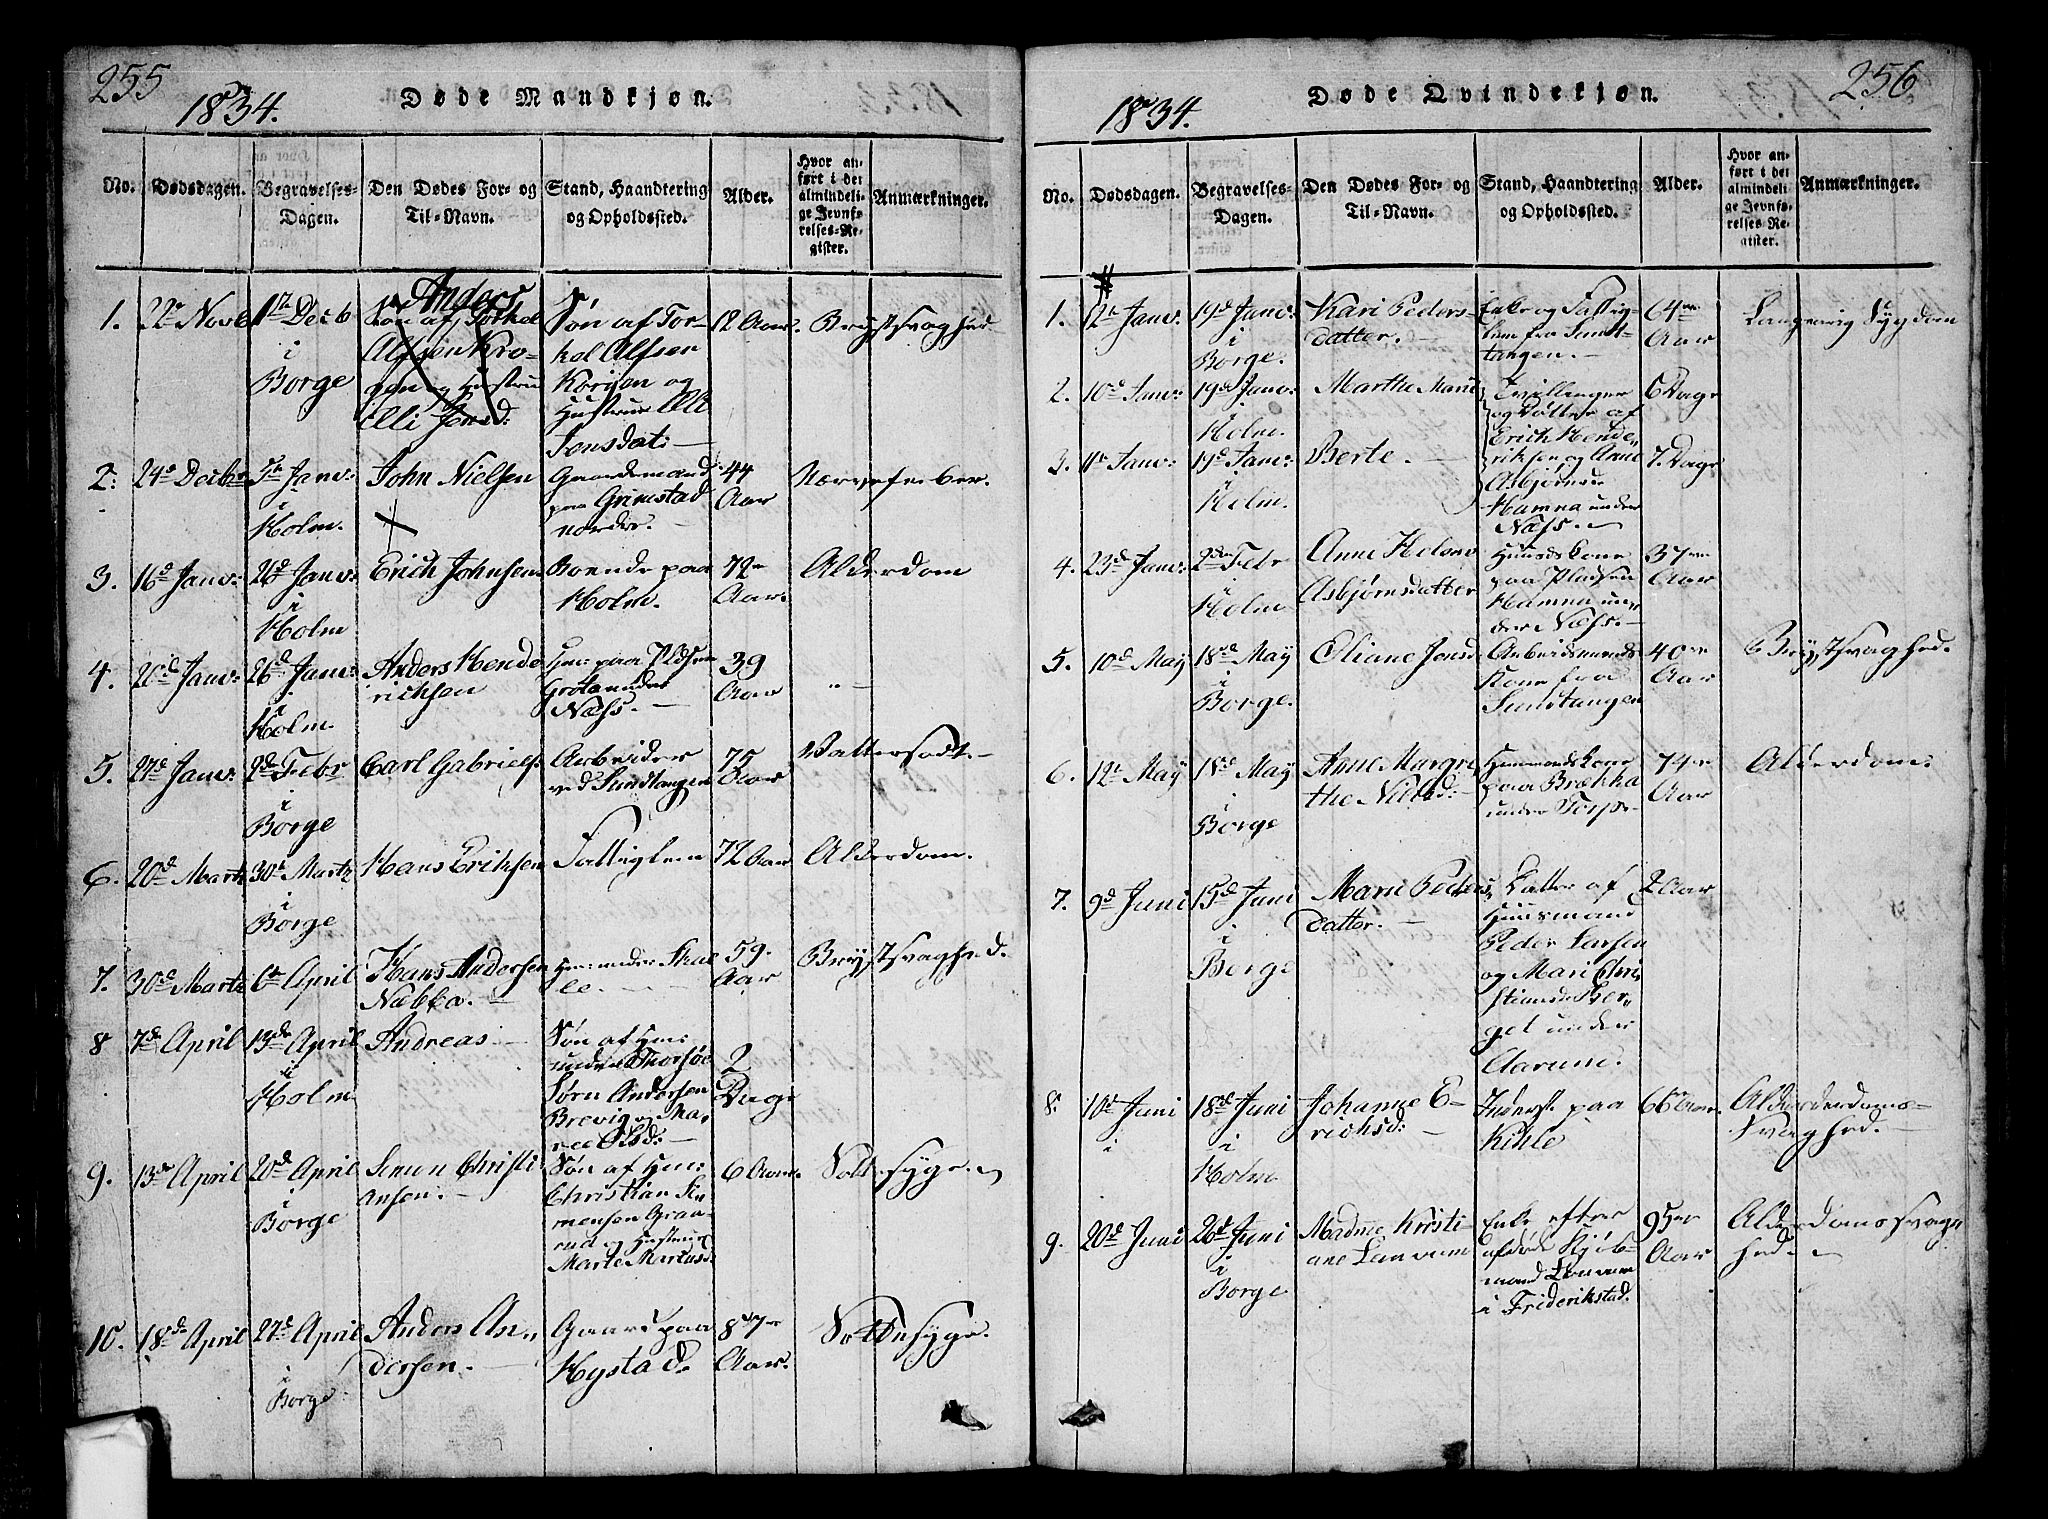 255
1834.
Døde Mandkjøn.
No.
Dødsdagen.
Begravelses-
Dagen.
Den Dødes For- og
Til-Navn.
Stand, Haandtering
og Opholdssted.
Alder.
Hvor an-
ført i det
almindeli-
ge Jevnfø-
relses-Re-
gister.
Anmærkninger.
1.
22de Novb
1te Decb
i
Borge
Anders
Søn af Torkel
Alfsen Kro-
gen og Hustru
Elli Jonsd:
Søn af Tor-
kel Alfsen
Korigen og
Hustrue Elli
Jonsdat:
12 Aar.
Brystsvaghed
2.
24de Decbr
5te Janv:
i
Holm.
John Nielsen
Gaardemand
paa Grimstad
nordre.
44
Aar
Nærvefeber.
3.
16d Janv:
26d Janv:
i
Holm
Erich Johnsen
Boende paa
Holm.
72
Aar.
Alderdom
4.
20d Janv:
26d Janv:
i
Holm
Anders Hende
richsen
Huu: paa Pladsen
Grota under
Næss.
39
Aar
" —
5.
27d Janv:
2den Febr
i
Borge
Carl Gabriels:
Arbeider
ved Sundtangen
75
Aar
Vattersodt.
6.
20d Martz
30d Martz
i
Borge
Hans Eriksen
Fattiglem
72 Aar
Alderdom.
7.
30d Martz
6te April
Hans Andersen
Nabba.
59.
Aar
Brystsvaghed.
8
7de April
13de April
i
Holm
Andreas
Søn af Huu:
under Thorsøe
Sørn Andersen
Brevig og Ma-
ree Olsd:
2
Dage
9.
13de April
20de April
i
Borge
Simen Christi
ansen.
Søn af Huu:
Christian Si
mensen Graa-
rud og Hustrue
Marte Martusd:
6 Aar.
10.
18de April
27de April
i
Borge
Anders An-
dersen.
Gaard paa
Hystad
87
Aar.
Sottesyge.
256
1834.
Døde Qvindekjøn.
No.
Dødsdagen.
Begravelses-
Dagen.
Den Dødes For- og
Til-Navn.
Stand, Haandtering
og Opholdssted.
Alder.
Hvor an-
ført i det
almindeli-
ge Jevnfø-
relses-Re-
gister.
Anmærkninger.
1.
12te Janv.
19d Janv:
i
Borge.
Kari Peders-
datter.
Enke og Fattig-
lem fra Sund-
tangen.
64
Aar
Langvarig Sygdom
2.
10d Janv:
19d Janv:
i
Holm.
Marthe Marie
Tvillinger
og Døttre af
Erich Hende-
riksen og Anne
Asbjørnsd
Hamna under
Næss.
6 Dage
3.
11te Janv:
19d Janv:
i
Holm.
Berte.
7. Dage
4.
23d Janv:
2den Febr
i
Holm
Anne Helene
Asbjørnsdatter
Huusds Kone
paa Pladsen
Hamna un-
der Næss.
37
Aar
5.
10d May
18d May
i
Borge.
Eliane Jensd:
Arbeidsmands
Kone fra
Sundtangen
40
Aar
Brystsvaghed.
6.
12te May
18d May
i
Borge
Anne Margre
the Nielsd:
Huusmands Kone
paa Brækka
under Torp.
74
Aar
Alderdom:
7.
9d Juni
15d Juni
i
Borge
Marie Peders
datter.
Datter af
Huusmand
Peder Larsen
og Mari Chri
stiansd Ber-
get under
Aarum.
2 Aar
8.
10d Juni
18d Juni
i
Holm
Johanne E-
richsd:
Inderst paa
Kihle
66 Aar.
Alderderdoms-
Svaghed.
9.
20d Juni
26d Juni
i
Borge
Madme Kristi
ane Lanvum
Enke efter
afdøde Kjøb-
mand Lanvum
i Friderikstad.
95
Aar
Alderdomssvag
hed